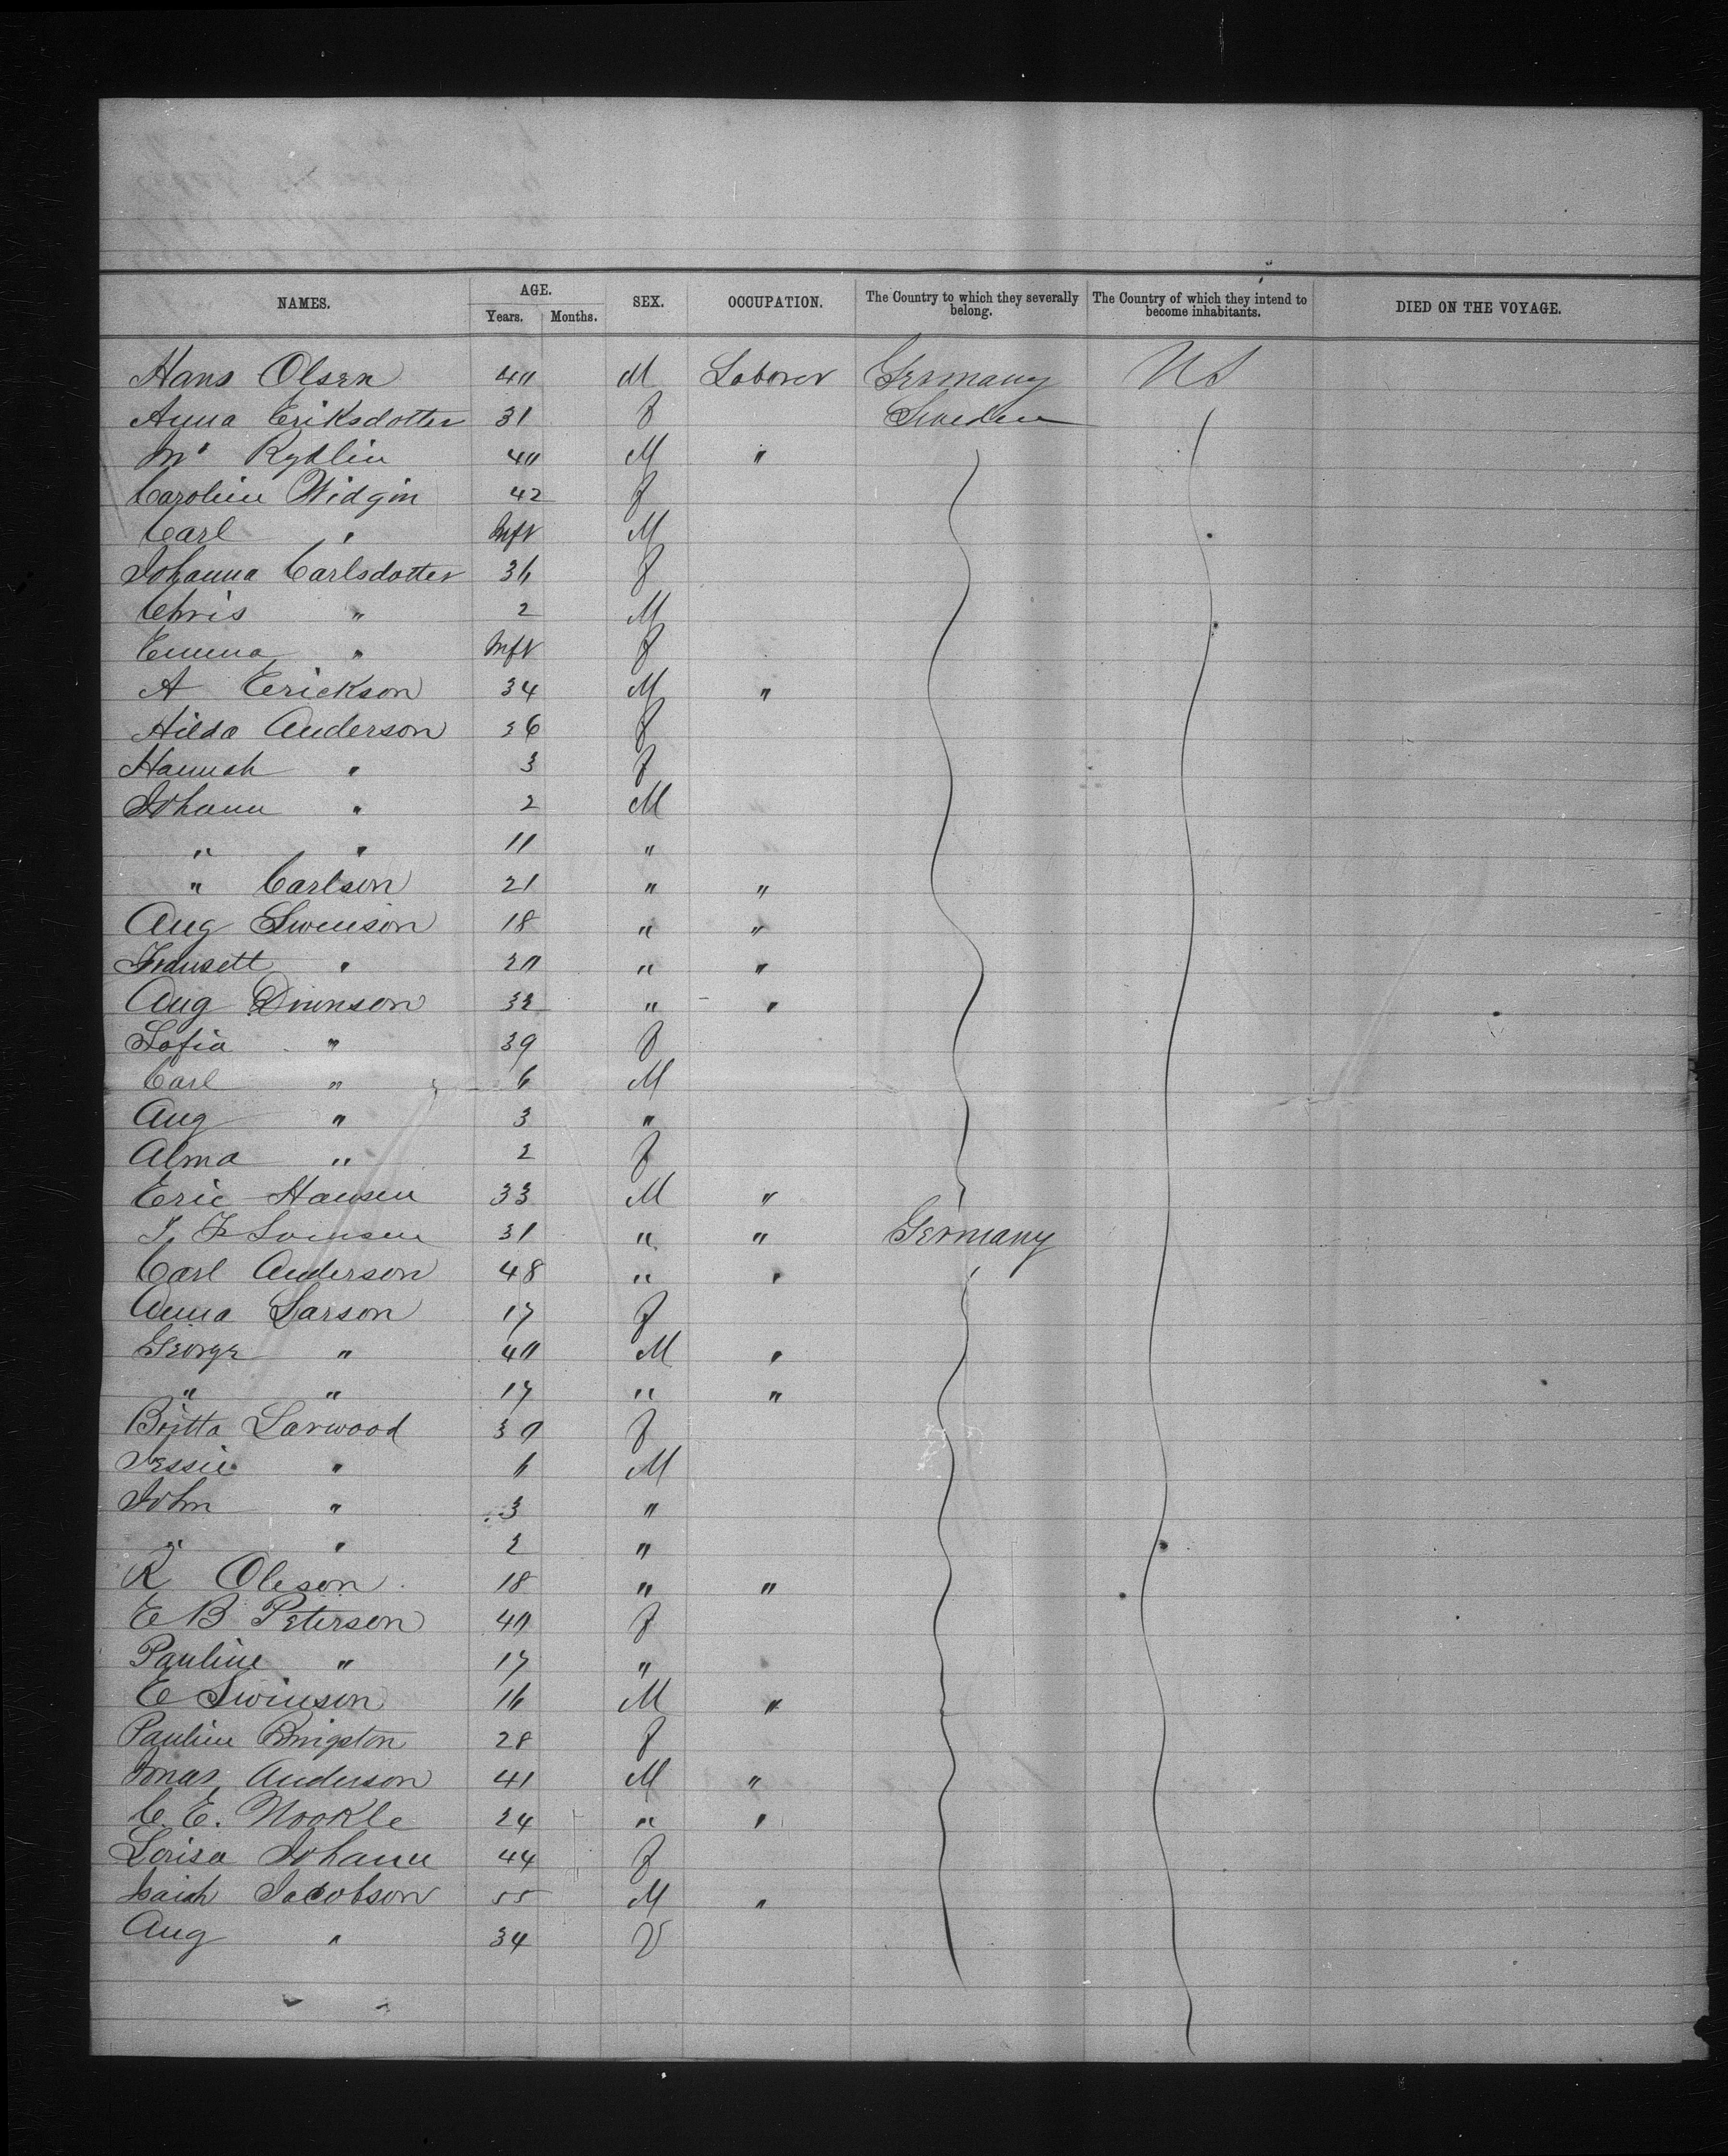 NAMES. AGE. Years. Months. SEX. OCCUPATION. The Country to which they severally belong. The Country of which they intend to become inhabitants. DIED ON THE VOYAGE.
Hans Olsen 40 M Laborer Germany US
Anna Eriksdotter 31 F Sweden
Rydlin 40 M "
Caroline Widgin 42 F
Carl " Inft M
Johanna Carlsdotter 36 F
Chris " 2 M
Emma " Inft F
A Erickson 34 M "
Hilda Anderson 36 F
Hannah " 3 F
Johann " 2 M
" " 11 "
" Carlson 21 " "
Aug Swenson 18 " "
" 20 " "
Aug 32 " "
Sofia " 39 F
Carl " 6 M
Aug " 3 "
Alma " 2 F
Eric Hansen 33 M "
31 " " Germany
Carl Anderson 48 " "
Anna Larson 17 F
George " 40 M "
" " 17 " "
Britta Larwood 30 F
Jessie " 6 M
John " 3 "
" " 2 "
K Oleson 18 " "
E B Peterson 40 F
Pauline " 17 "
E Swinson 16 M "
Pauline 28 F
Jonas Anderson 41 M "
C. E. Nookle 24 " "
Lovisa Johann 44 F
Isaiah Jacobson 55 M "
Aug " 34